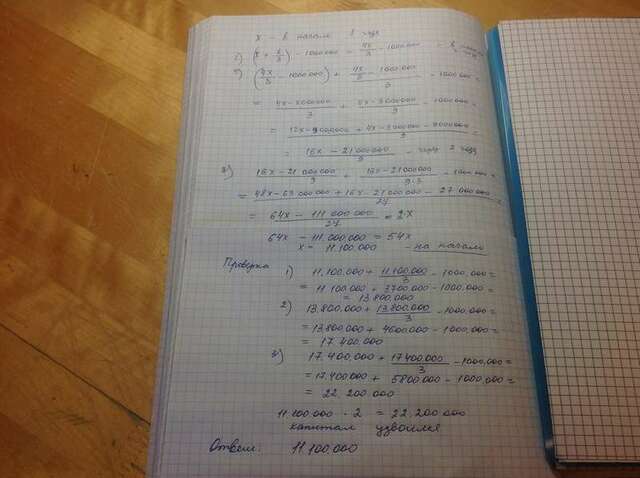 x – в начале 1 года
1) (x + x/3) – 1000000 = 4x/3 – 1000000 =
2) (4x/3 – 1000000) + 4x/3 – 1000000/3 – 1000000 =
= 4x – 3000000/3 + 4x – 3000000/9 – 1000000 =
= 12x – 9000000 + 4x – 3000000 – 9000000/9 =
= 16x – 21000000/9 – через 2 года
3) 16x – 21 000 000/9 + 16x – 21000000/9·3 – 1000000 =
= 48x – 63 000 000 + 16x – 21 000 000 – 27 000 000/27 =
= 64x – 111 000 000/27 = 2x
64x – 111.000.000 = 54x
x = 11.100.000 – на начало
Проверка 1) 11.100.000 + 11.100.000/3 – 1000.000 =
= 11 100.000 + 3700.000 – 1000.000 =
= 13 800.000
2) 13.800.000 + 13.800.000/3 – 1000.000 =
= 13800.000 + 4600000 – 1000.000 =
= 17 400.000
3) 17.400.000 + 17400.000/3 – 1000.000 =
= 17.400.000 + 5800000 – 1000.000 =
= 22.200.000
11.100.000 · 2 = 22.200.000
капитал удвоился
Ответ: 11.100.000